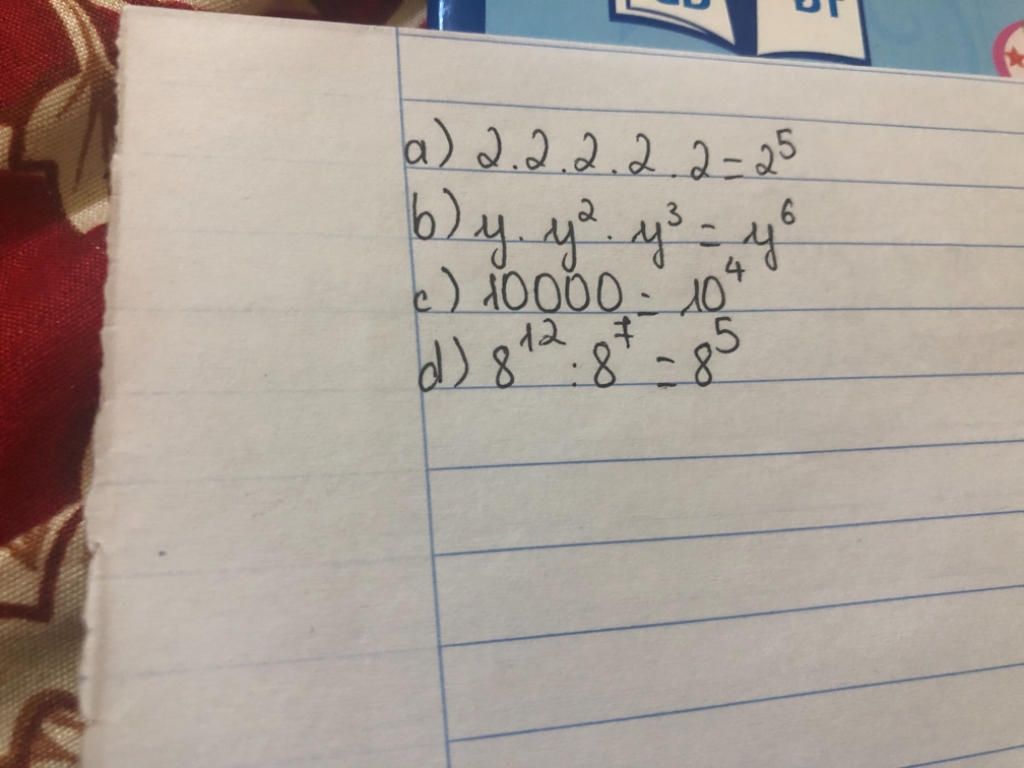 a) 2.2.2.2.2=2⁵
b) y.y².y³=y⁶
c) 10000=10⁴
d) 8¹²:8⁷=8⁵